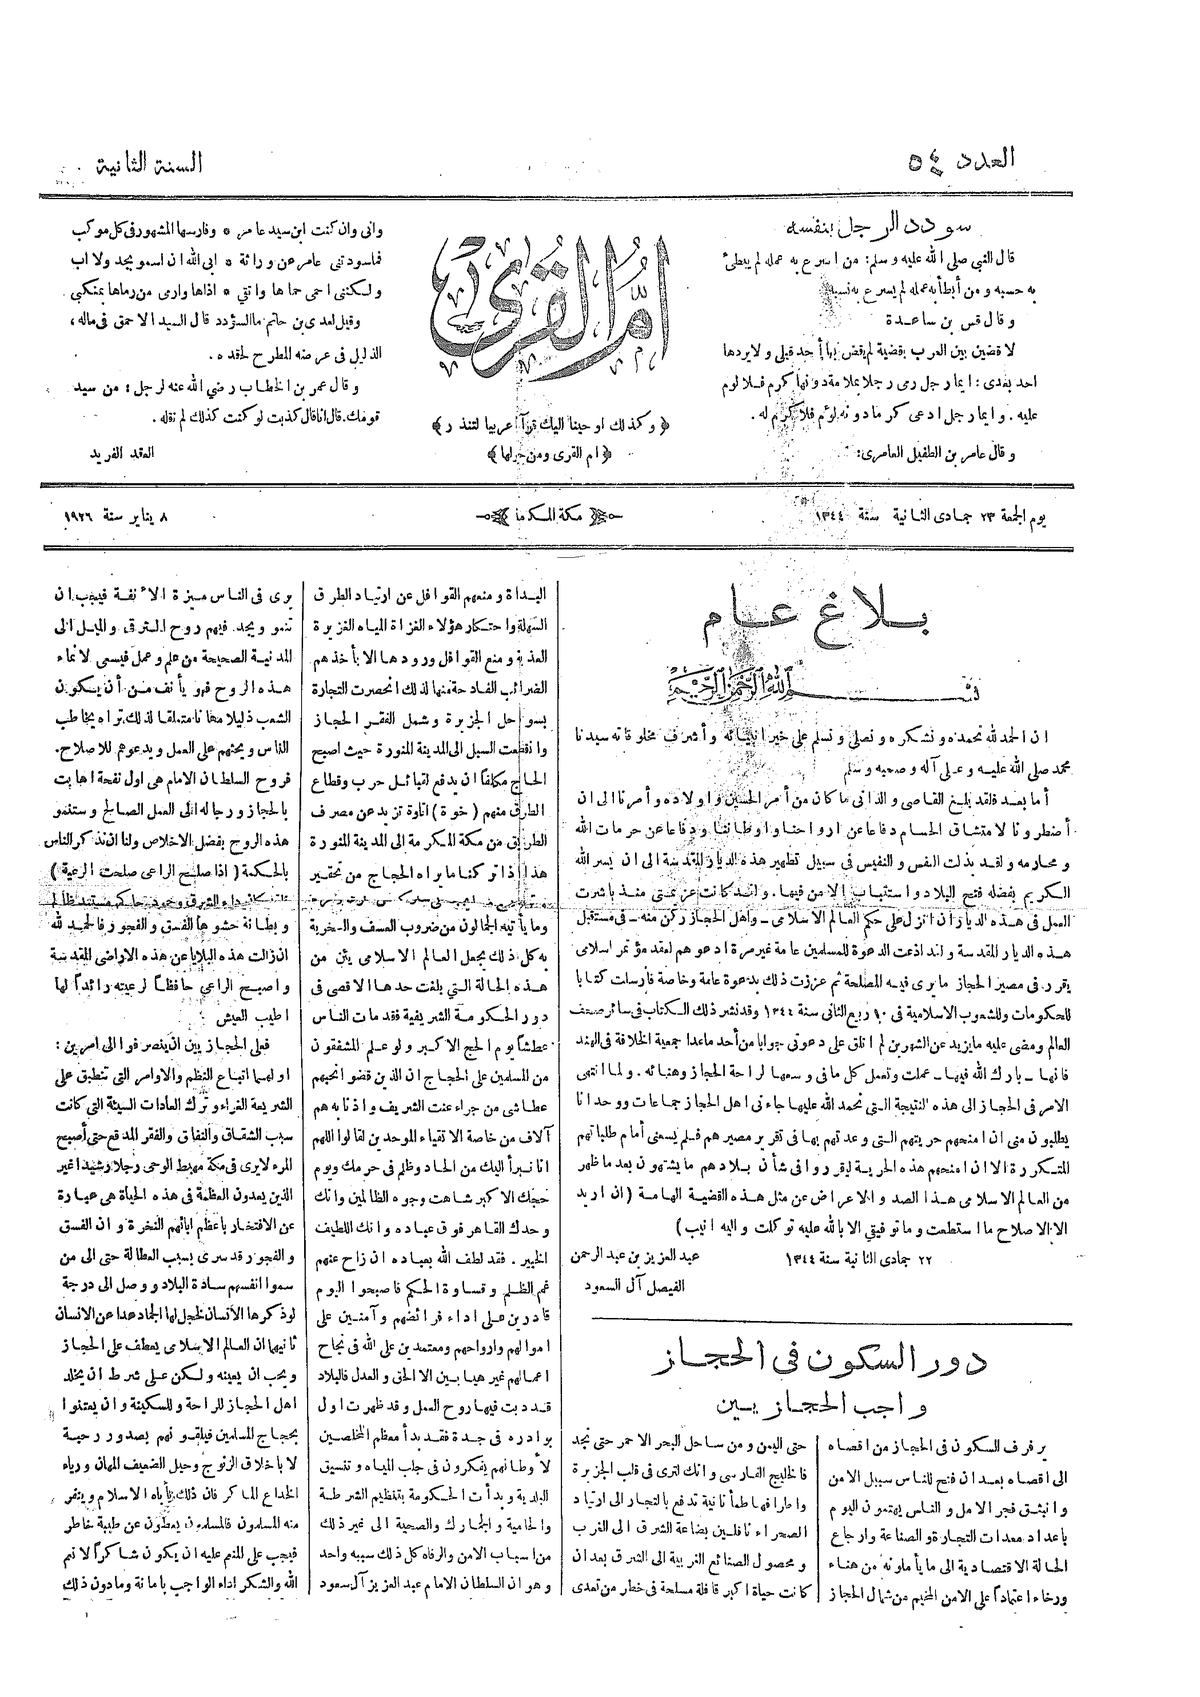 العدد ٥٤
السنة الثانية
سودد الرجل بنفسه
قال النبي صلى الله عليه وسلم: من اسرع به عمله لم يبطئ
به حسبه ومن أبطأ به عمله لم يسرع به نسبه
وقال قس بن ساعدة
لاقضين بين العرب بقضية لم يقض بها أحد قبلى ولا يردها
احد بعدى: ايما رجل رمى رجلا بملامة دونها كرم فلا لوم
عليه. وايما رجل ادعى كرما دونه لؤم فلا كرم له.
وقال عامر بن الطفيل العامرى:
أم القرى
﴿وكذلك اوحينا اليك قرآنا عربيا لتنذر﴾
﴿ام القرى ومن حولها﴾
وانى وان كنت ابن سيد عامر * وفارسها المشهور فى كل موكب
فما سودتنى عامر عن وراثة * ابى الله ان اسمو بجد ولا اب
ولكننى احمى حماها واتقي * اذاها وارى من رماها بمنكبي
وقيل لعدى بن حاتم ما السؤدد قال السيد الاحمق فى ماله،
الذليل فى عرضه المطرح لحقده.
وقال عمر بن الخطاب رضي الله عنه لرجل: من سيد
قومك. قال انا قال كذبت لو كنت كذلك لم تقله.
العقد الفريد
يوم الجمعة ٢٣ جمادى الثانية سنة ١٣٤٤
مكة المكرمة
٨ يناير سنة ١٩٢٦
بلاغ عام
بسم الله الرحمن الرحيم
ان الحمد لله نحمده ونشكره ونصلي ونسلم على خير انبيائه وأشرف مخلوقاته سيدنا
محمد صلى الله عليه وعلى آله وصحبه وسلم
أما بعد فلقد بلغ القاصى والدانى ما كان من أمر الحسين واولاده وأمرنا الى ان
أضطرونا لامتشاق الحسام دفاعا عن ارواحنا واوطاننا ودفاعا عن حرمات الله
ومحارمه ولقد بذلت النفس والنفيس فى سبيل تطهير هذه الديار المقدسة الى ان يسر الله
الكريم بفضله فتح البلاد واستتباب الامن فيها. ولقد كانت عزيمتى منذ باشرت
العمل فى هذه الديار ان انزل على حكم العالم الاسلامى – واهل الحجاز ركن منه – فى مستقبل
هذه الديار المقدسة ولقد اذعت الدعوة للمسلمين عامة غير مرة ادعوهم لعقد مؤتمر اسلامى
يقرر فى مصير الحجاز ما يرى فيه المصلحة ثم عززت ذلك بدعوة عامة وخاصة فأرسلت كتابا
للحكومات وللشعوب الاسلامية فى ١٠ ربيع الثانى سنة ١٣٤٤ وقد نشر ذلك الكتاب فى سائر صحف
العالم ومضى عليه ما يزيد عن الشهرين لم اتلق على دعوتى جوابا من أحد ما عدا جمعية الخلافة فى الهند
فانها – بارك الله فيها – عملت وتعمل كل ما فى وسعها لراحة الحجاز وهنائه. ولما انتهى
الامر فى الحجاز الى هذه النتيجة التى نحمد الله عليها جاءنى اهل الحجاز جماعات ووحدانا
يطلبون منى ان امنحهم حريتهم التى وعدتهم بها فى تقرير مصيرهم فلم يسعنى أمام طلباتهم
المتكررة الا ان امنحهم هذه الحرية ليقرروا فى شأن بلادهم ما يشتهون بعد ما ظهر
من العالم الاسلامى هذا الصد والاعراض عن مثل هذه القضية الهامة (ان اريد
الا الاصلاح ما استطعت وما توفيقي الا بالله عليه توكلت واليه انيب)
٢٢ جمادى الثانية سنة ١٣٤٤
عبد العزيز بن عبد الرحمن
الفيصل آل السعود
دور السكون فى الحجاز
واجب الحجازيين
يرفرف السكون فى الحجاز من اقصاه
الى اقصاه بعد ان فتح للناس سبيل الامن
وانبثق فجر الامل والناس يهتمون اليوم
باعداد معدات التجارة والصناعة وارجاع
الحالة الاقتصادية الى ما يأملونه من هناء
ورخاء اعتمادا على الامن المخيم من شمال الحجاز
حتى اليمن ومن ساحل البحر الاحمر حتى نجد
فالخليج الفارسى وانك لترى فى قلب الجزيرة
واطرافها طمأنانية تدفع بالتجار الى ارتياد
الصحراء ناقلين بضاعة الشرق الى الغرب
ومحصول الصنائع الغربية الى الشرق بعد ان
كانت حياة اكبر قافلة مسلحة فى خطر من تعدى
البداة ومنعهم القوافل عن ارتياد الطرق
السهلة واحتكار هؤلاء الغزاة المياه الغزيرة
العذبة ومنع القوافل ورودها الا بأخذهم
الضرائب الفادحة منها لذلك انحصرت التجارة
بسواحل الجزيرة وشمل الفقر الحجاز
وانقطعت السبل الى المدينة المنورة حيث اصبح
الحاج مكلفا ان يدفع لقبائل حرب وقطاع
الطرق منهم (خوة) اتاوة تزيد عن مصرف
الطريق من مكة المكرمة الى المدينة المنورة
هذا اذا تركنا ما يراه الحجاج من تحقير
وما يأتيه الجمالون من ضروب العسف والسخرية
به كل ذلك يجعل العالم الاسلامى يئن من
هذه الحالة التى بلغت حدها الاقصى فى
دور الحكومة الشريفية فقد مات الناس
عطشا يوم الحج الاكبر ولو علم المشفقون
من المسلمين على الحجاج ان الذين قضوا نحبهم
عطاشى من جراء عنت الشريف واذنابه هم
آلاف من خاصة الاتقياء الموحدين لقالوا اللهم
انا نبرأ اليك من الحاد وظلم فى حرمك ويوم
حجك الاكبر شاهت وجوه الظالمين وانك
وحدك القاهر فوق عباده وانك اللطيف
الخبير. فقد لطف الله بعباده ان زاح عنهم
غم الظلم وقساوة الحكم فاصبحوا اليوم
قادرين على اداء فرائضهم وآمنين على
اموالهم وارواحهم ومعتمدين على الله فى نجاح
اعمالهم غير هيابين الا الحق والعدل فالبلاد
قد دبت فيها روح العمل وقد ظهرت اول
بوادره فى جدة فقد بدأ معظم المخلصين
لأوطانهم يفكرون فى جلب المياه وتنسيق
البلدية وبدأت الحكومة بتنظيم الشرطة
والحامية والجمارك والصحية الى غير ذلك
من اسباب الامن والرفاه كل ذلك سببه واحد
وهو ان السلطان الامام عبد العزيز آل سعود
يرى فى الناس ميزة الأنفة فيجب ان
تنمو ويجد. فيهم روح الترقى والميل الى
المدنية الصحيحة من علم وعمل فيسعى لانماء
هذه الروح فهو يأنف من أن يكون
الشعب ذليلا مهانا متملقا لذلك تراه يخاطب
الناس ويحثهم على العمل ويدعوهم للاصلاح.
فروح السلطان الامام هى اول نفحة اهابت
بالحجاز ورجاله الى العمل الصالح وستنمو
هذه الروح بفضل الاخلاص ولنا ان نذكر الناس
بالحكمة (اذا صلح الراعى صلحت الرعية)
وبطانة حشوها الفسق والفجور فالحمد لله
ان زالت هذه البلايا عن هذه الاراضى المقدسة
واصبح الراعي حافظا لرعيته رائدا لها
اطيب العيش
فعلى الحجازيين ان ينصرفوا الى امرين:
اولهما اتباع النظم والاوامر التى تنطبق على
الشريعة الغراء وترك العادات السيئة التى كانت
سبب الشقاق والنفاق والفقر المدقع حتى أصبح
المرء لا يرى فى مكة مهبط الوحى رجلا رشيدا غير
الذين يعدون العظمة فى هذه الحياة هى عبارة
عن الافتخار بأعظم ابائهم النخرة وان الفسق
والفجور قد سرى بسبب العطالة حتى الى من
سموا انفسهم سادة البلاد ووصل الى درجة
لو ذكرها الانسان لخجل لها الجماد عدا عن الانسان
ثانيهما ان العالم الاسلامى يعطف على الحجاز
ويحب ان يعينه ولكن على شرط ان يخلد
اهل الحجاز للراحة وللسكينة وان يعتنوا
بحجاج المسلمين فيلقونهم بصدور رحبة
لا باخلاق الزنوج وحيل الضعيف المهان ورياء
الخداع الماكر فان ذلك يأباه الاسلام وينفر
منه المسلمون فالمسلمون يعطون عن طيبة خاطر
فيجب على المنعم عليه ان يكون شاكرا لانعم
الله والشكر اداء الواجب بامانة وما دون ذلك